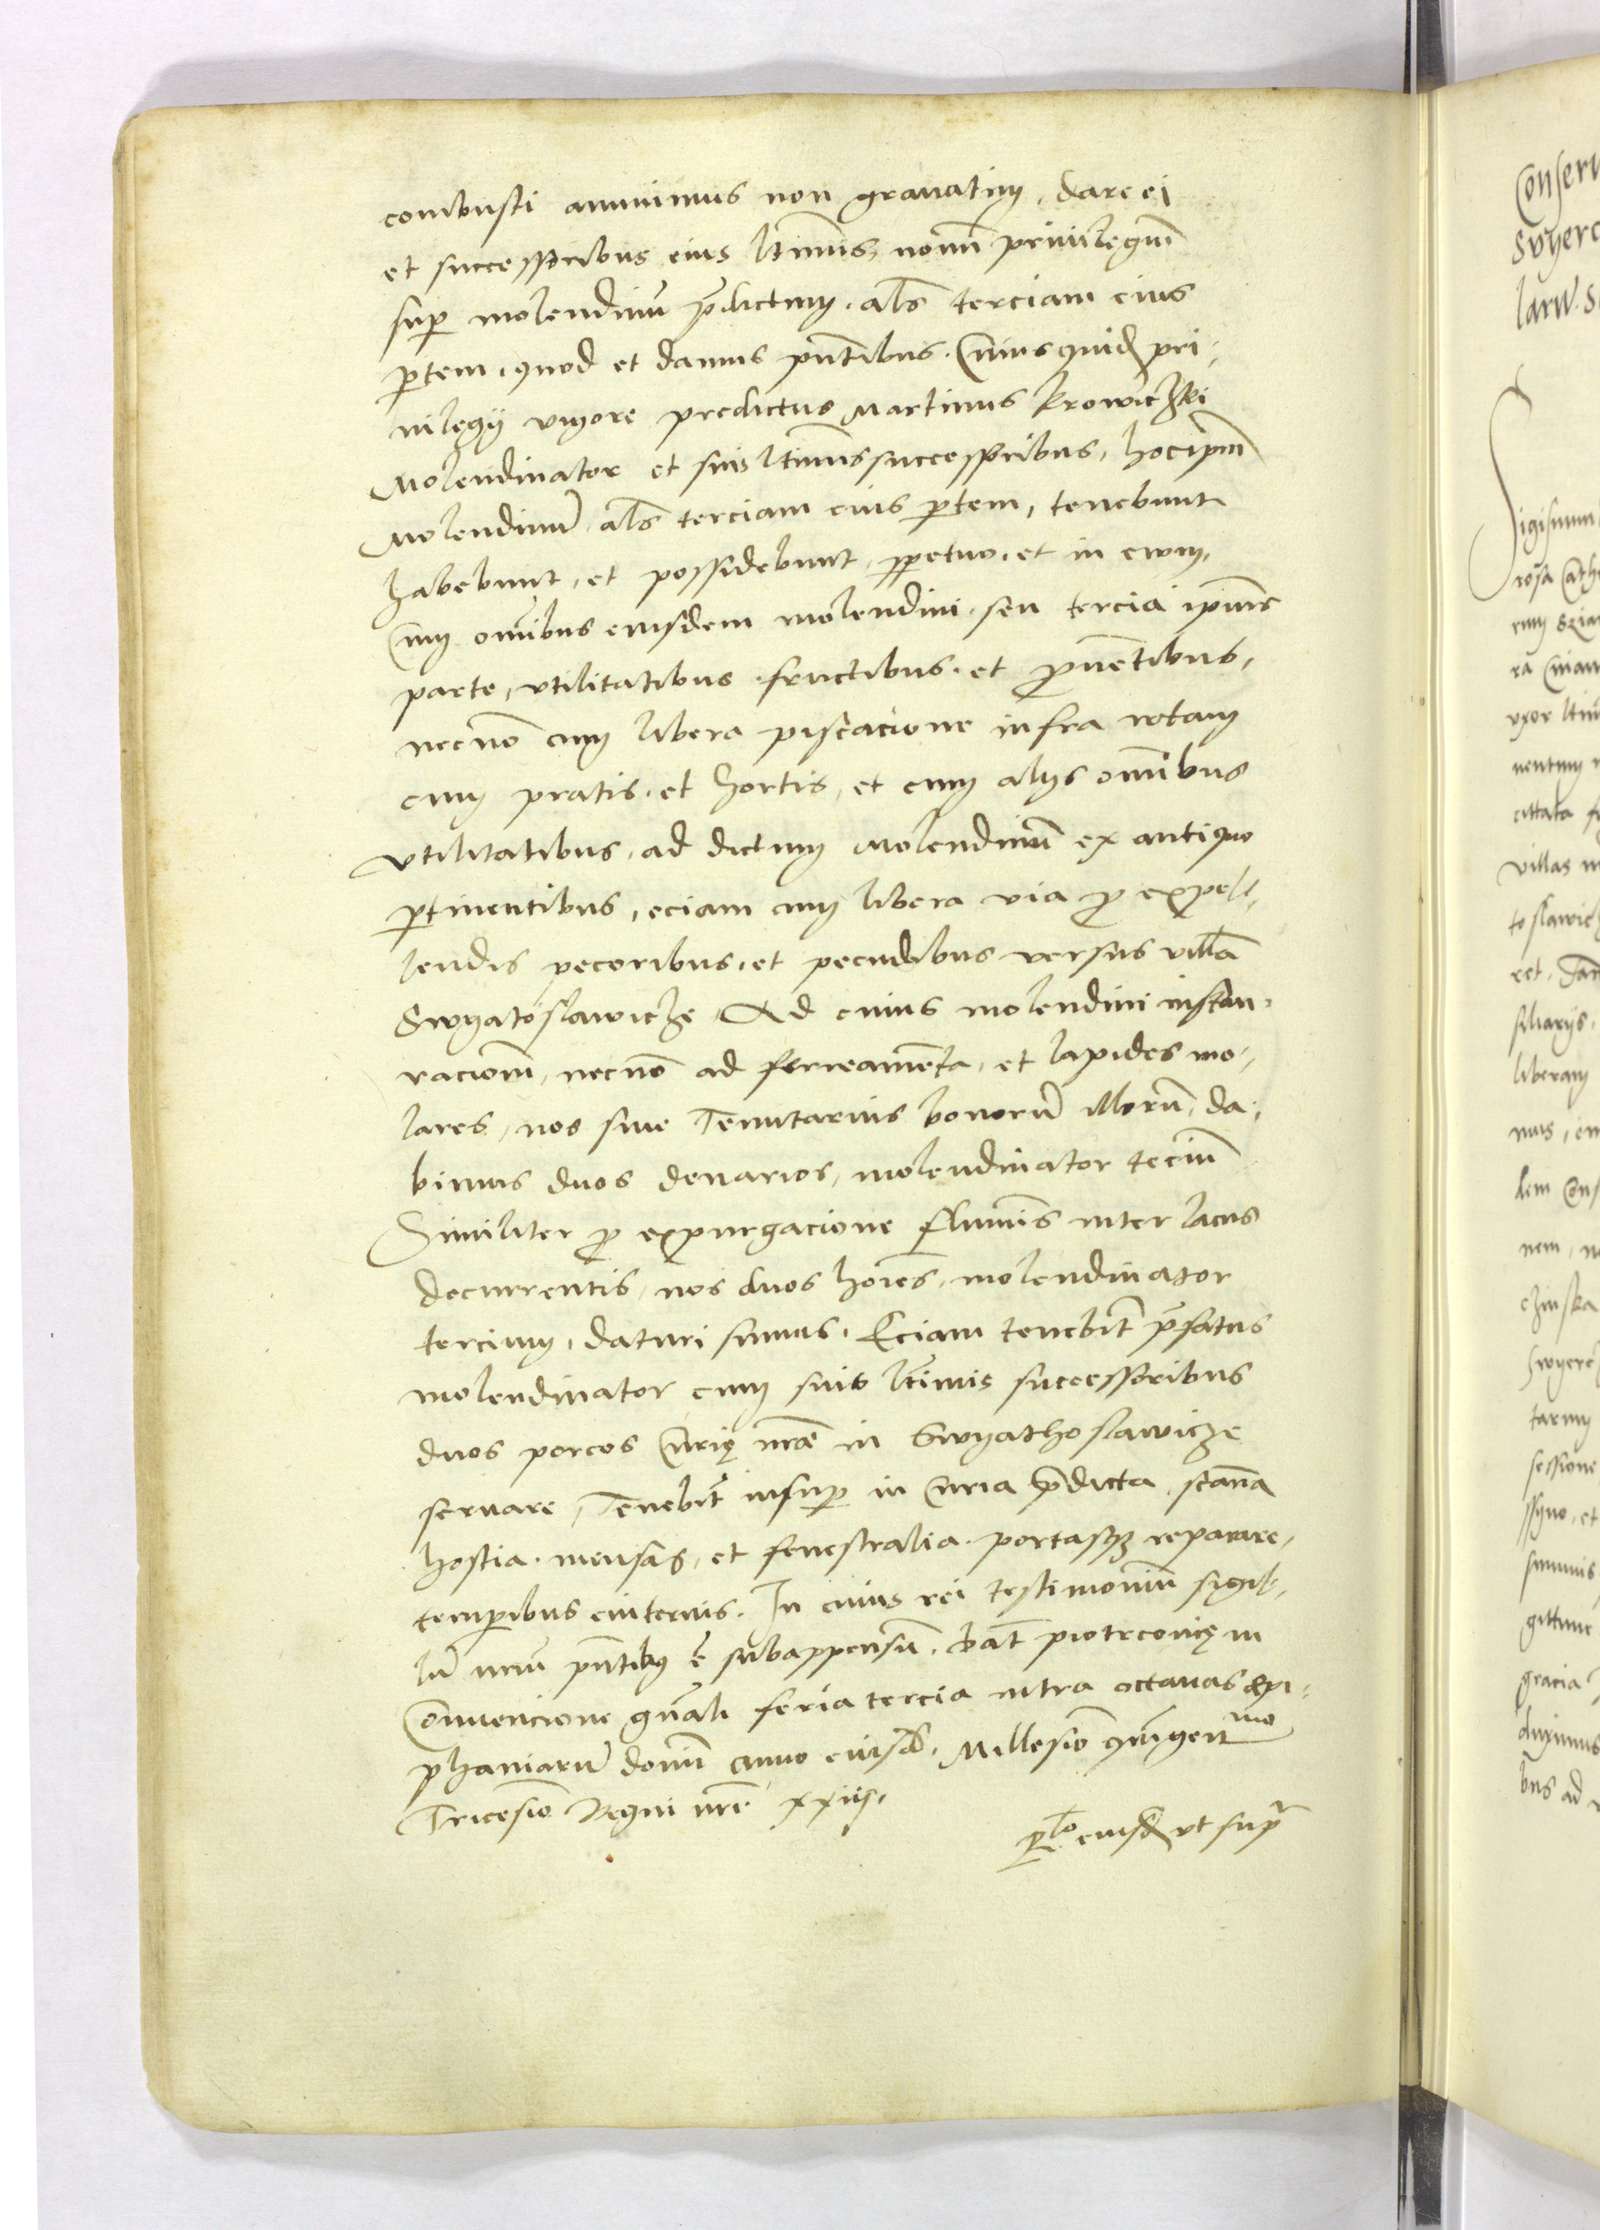 combusti annuimus non gravatim, dare ei
et successoribus eius ltimis, novum privilegium
sup molendinum pdictum, als terciam eius
ptem, quod et damus pntibus. Cuiusquid pri-
uilegij vigore predictus Martinus Krowiczki
Molendinator et suis ltimis successoribus, hoc ipm
Molendinum als terciam eius ptem, tenebunt
habebunt, et possidebunt, ppetuo, et in evum,
Cum omibus eiusdem molendini, seu tercia ipius
parte, vtilitatibus, fructibus, et puentibus,
necno cum libera piscacione infra rotam
cum pratis, et hortis, et cum alijs omibus
vtilitatibus, ad dictum Molendinum ex antiquo
ptinentibus, eciam cum libera via p expel-
lendis pecoribus, et pecudibus versus villa
Swyatoslawicze. Ad cuius molendini instau-
racionem, necno ad ferreamenta, et lapides mo-
lares, nos siue Tenutarius bonoru illoru, da-
bimus duos denarios, molendinator tecium
Similiter p expurgacione fluminis inter lacus
decurrentis, nos duos hoies, molendinator
tercium, daturi sumus. Eciam tenebit pfatus
molendinator cum suis ltimis successoribus
duos porcos Curię nrae in Swyathoslawicze
seruare, Tenebit insup in Curia pdicta, scamna
hostia, mensas, et fenestralia, portasque reparare,
temporibus euiternis. In cuius rei testimonium sigil-
lu nrum pntibus e subappensum. Dat piotrcouię in
Conuencione gnali feria tercia intra octauas Epi-
phaniaru domini Anno eiusd, Millesimo quingentmo
Tricesimo Regni nri xxiiij.
plo eiusd vt supr
Conser
Swyerc
larw. S
Sigismun
villas
toslawicz
siliarijs.
liberam
sessione
gracia
duximus
bus ad